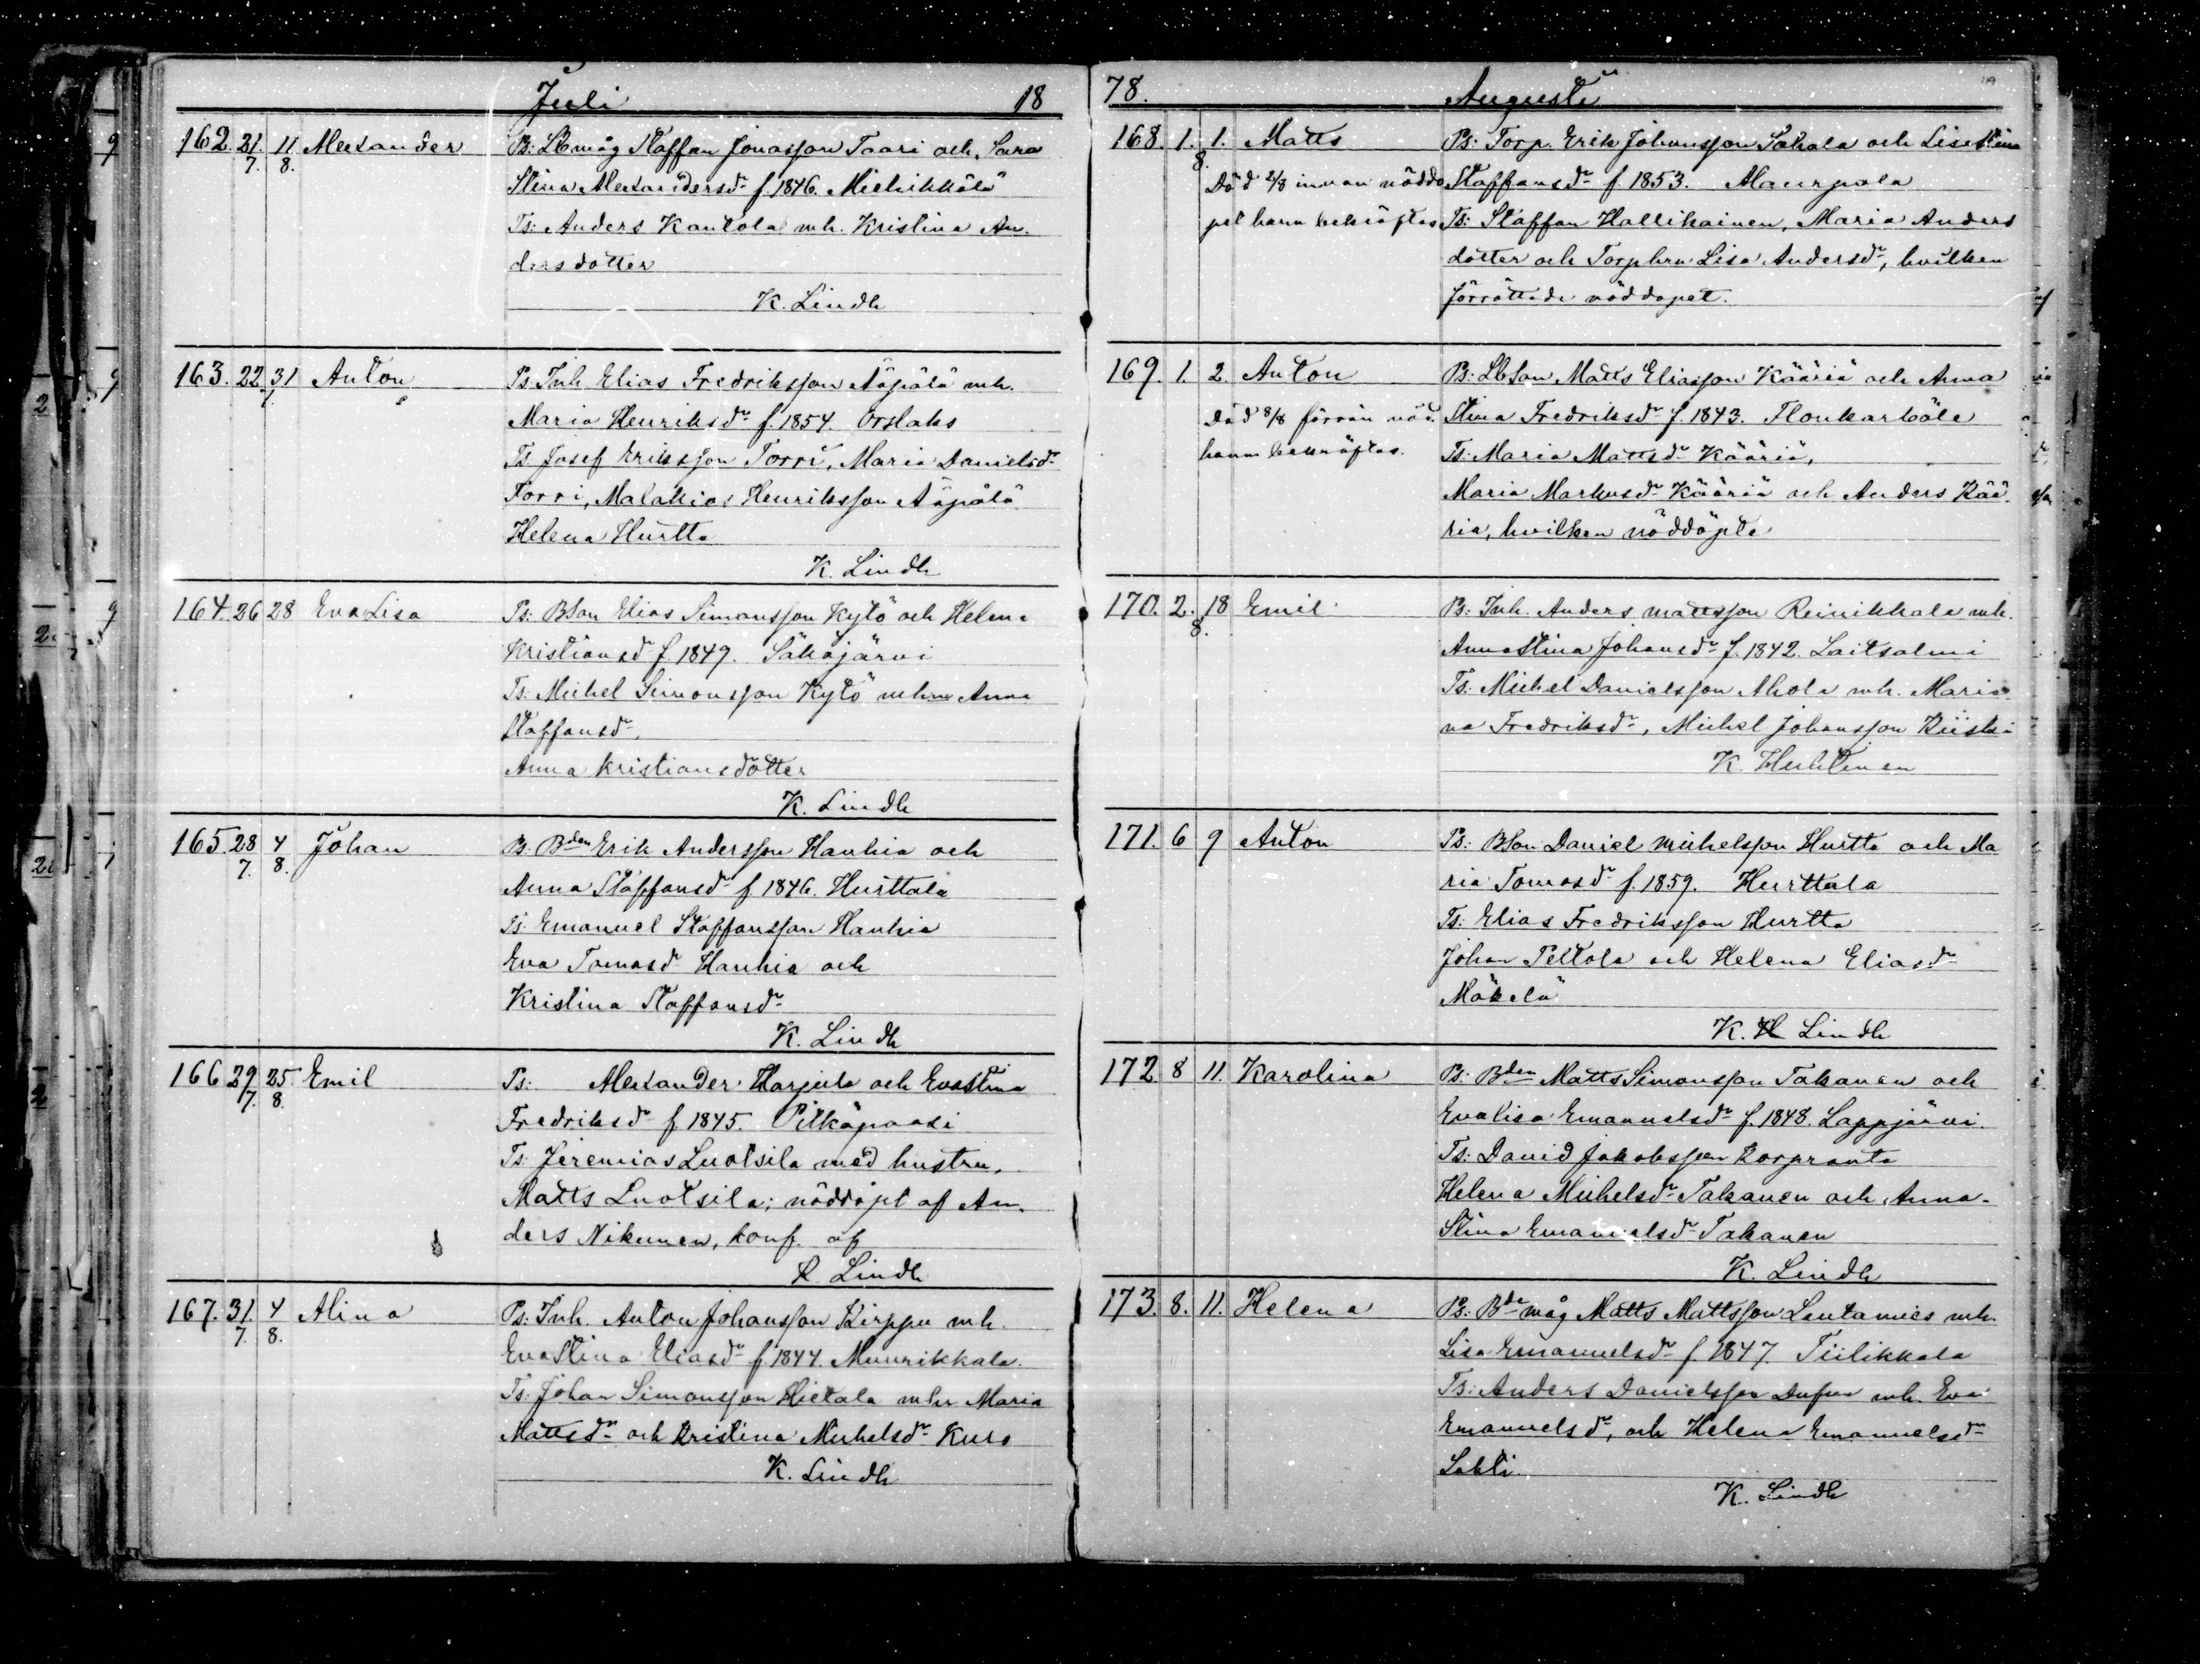 Juli 18
162. 21. 11 Alexander Ps: Lbmåg Staffan Jonasson Taari och Sara
7. 8. Stina Alexandersdr f. 1846. Miehikkälä
Ts: Anders Kantola mh. Kristina An-
dersdotter
K. Lindh
163. 22 31 Anton Ps. Inh. Elias Fredriksson Äöpälä mh.
7. Maria Henriksdr f. 1854. Orslahs
Ts. Josef Eriksson Torri, Maria Danielsdr
Torri, Malakias Henriksson Äöpälä
Helena Hurtta
K. Lindh
164. 26 28 Eva Lisa Ps: BSon Elias Simonsson Kytö och Helena
Kristiansd f. 1849. Säkäjärvi
Ts: Michel Simonsson Kytö mhu Anna
Staffansdr,
Anna Kristiansdotter
K. Lindh
165. 28 4 Johan Ps. Bden Erik Andersson Hanhia och
7. 8. Anna Staffansdr f. 1846. Hurttala
Ts. Emanuel Staffansson Hanhia
Eva Tomasdr Hanhia och
Kristina Staffansdr
K. Lindh
166 29 25 Emil Ps: Alexander Harjula och Evastina
7. 8. Fredriksdr f. 1845. Pitkäpaasi
Ts: Jeremias Luotsila med hustru,
Matts Luotsila; nöddöpt af An-
ders Nikunen, konf. af
K. Lindh
167. 31. 4 Alina Ps: Inh. Anton Johansson Kirppu mh.
7. 8. Eva Stina Eliasdr f. 1844. Muurikkala.
Ts: Johan Simonsson Hietala mhu Maria
Mattsdr och Kristina Michelsdr Kuro
K. Lindh
78. Augusti
168. 1. 1. Matts Ps: Torp. Erik Johansson Sakala och Lisa Stina
8. Död 2/8 innan nöddo Staffansdr f. 1853. Maurpala
pet hann bekräftas Ts: Staffan Hallikainen, Maria Anders
dotter och Torphru Lisa Andersdr, hvilken
förrättade nöddopet.
169. 1. 2. Anton Ps: LbSon Matts Eliasson Kääriä och Anna
Död 8/8 förrän nöd. Stina Fredriksdr f. 1843.
hann bekräftas. Ts: Maria Mattsdr Kääriä,
Maria Markusdr Kääriä och Anders Kää-
riä, hvilken nöddöpte
170. 2. 18 Emil Ps: Inh. Anders Mattsson Reinikkala mh.
8. Anna Stina Johansdr f. 1842. Laitsalmi
Ts: Michel Danielsson Ahola mh. Maria-
na Fredriksdr, Michel Johansson Kiiski
K. Huhtinen
171. 6 9 Anton Ps: BSon Daniel Michelsson Hurtta och Ma
ria Tomasdr f. 1859. Hurttala
Ts: Elias Fredriksson Hurtta
Johan Peltola och Helena Eliasdr
Mäkelä
K. Lindh
172. 8 11. Karolina Ps: Bden Matts Simonsson Takanen och
Evalisa Emanuelsdr f. 1848. Lappjärvi.
Ts: David Jakobsson Korpranta
Helena Michelsdr Takanen och Anna-
Stina Emanuelsdr Takanen
K. Lindh
173. 8. 11. Helena Ps: Bde måg Matts Mattsson Lautamies mh.
Lisa Emanuelsdr f. 1847. Tiilikkala
Ts: Anders Danielsson mh. Eva
Emanuelsd, och Helena Emanuelsdr
Lahti.
K. Lindh